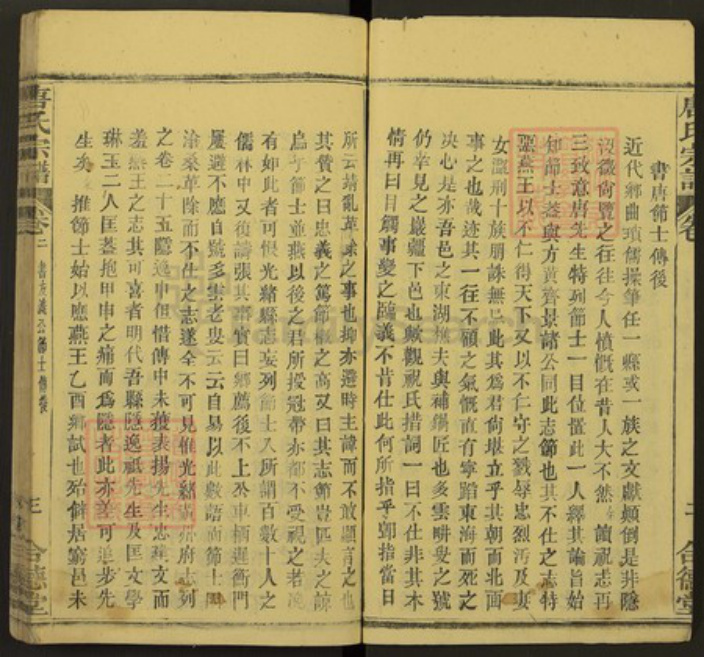 書唐節士傳後
近代鄉曲瑣儒操筆任一縣或一族之文獻顛倒是非隱
沒微尚覽之往往令人憤慨在昔人大不然讀祝志再
三致意唐先生特列節士一目位置此一人釋其論旨始
知節士蓋與方黃齊景諸公同此志節也其不仕之志特
惡燕王以不仁得天下又以不仁守之戮辱忠烈污及妻
女濫刑十族朋誅無已此其爲君尙堪立乎其朝而北面
事之也哉迹其一往不顧之氣慨直有寧蹈東海而死之
決心是亦吾邑之東湖樵夫與補鍋匠也多雲畊叟之號
仍幸見之巖疆下邑也歟觀祝氏措詞一曰不仕非其本
情再曰目觸事變之臨義不肯仕此何所指乎卽指當日
所云靖亂革除之事也抑亦避時主諱而不敢顯言之也
其賛之曰忠義之篤節槪之高又曰其志節豈匹夫之諒
爲乎節士並燕以後之君所授冠帶亦都不受視之若
有如此者可恨光緖縣志妄列節士入所謂百數十人之
儒林中又復譸張其事實曰鄕薦後不上公車栖遲衡門
屢避不應自號多雲老叟云云自易以此數語而節士
滄桑革除而不仕之志遂全不可見惟光緖 府志列
之卷二十五隱逸中但惜傳中未獲表揚先生忠 文而
羞燕王之志其可喜者明代吾縣隱逸祇先生及匡文學
琳玉二人匡蓋抱甲申之痛而爲隱者此亦差可追步先
生矣 推節士始以應燕王乙酉鄕試也殆僻居窮邑未
唐氏宗譜
卷二
書 義公節士傳後
三
合德堂
唐氏宗譜
卷
合德堂